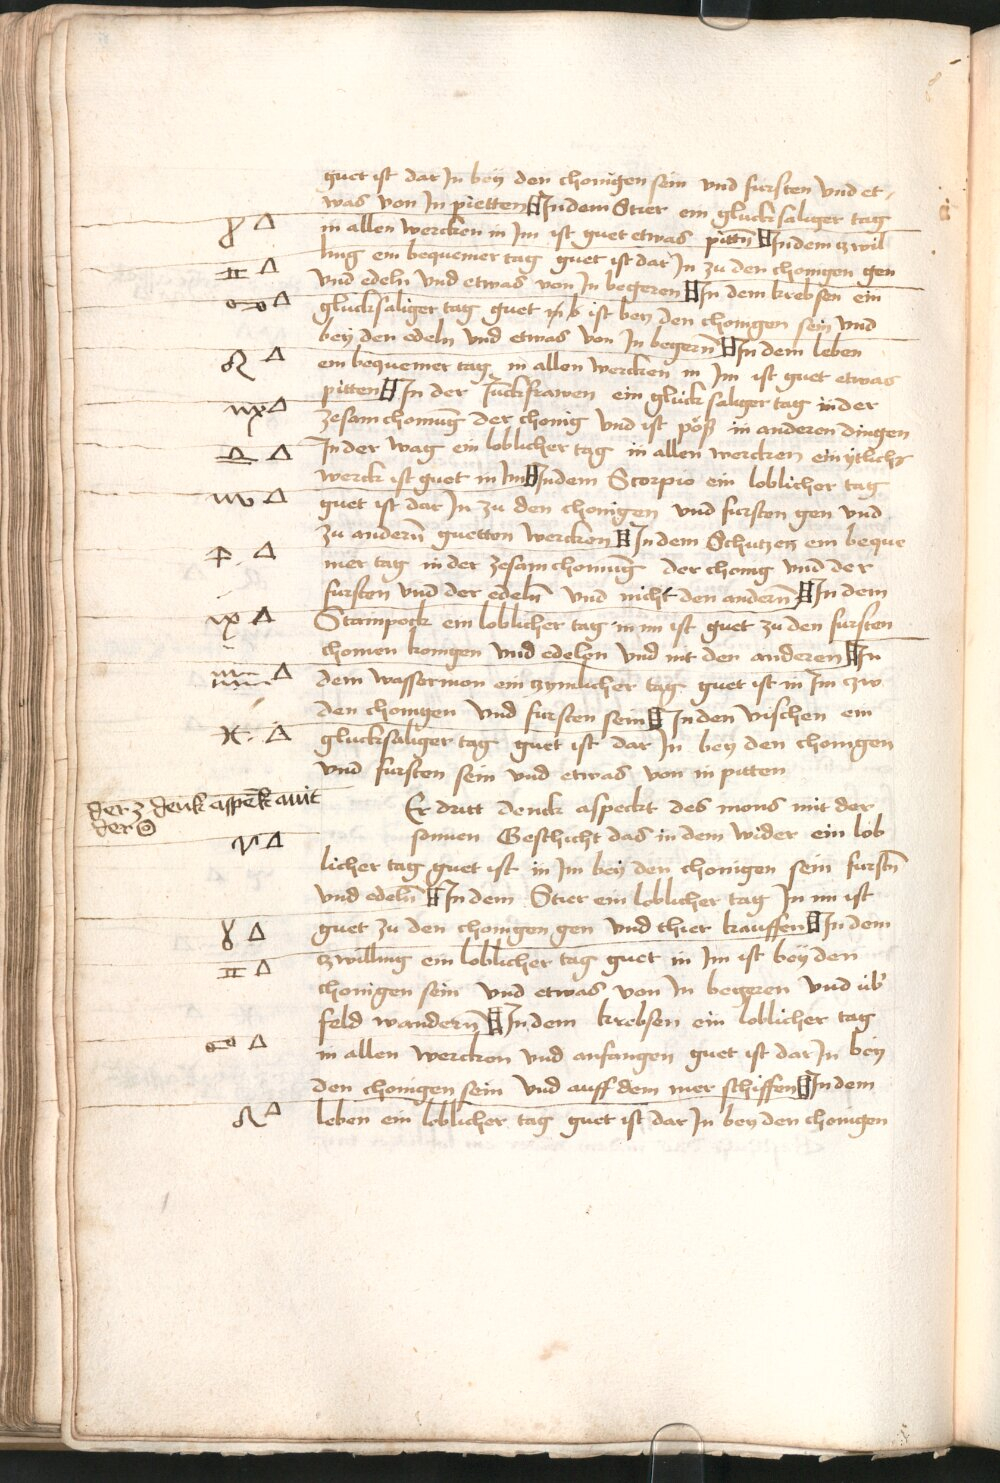 guet ist dar In bey den chonigen sein vnd fursten vnd et-
was von In pietten In dem Stier ein glucksaliger tag
♉ △ in allen wercken in Im ist guet etwas pittn̄ In dem zwil
ling ein bequemer tag guet ist dar In zu den chonigen gen
♊ △ vnd edeln vnd etwas von In begeren In dem krebsen ein
♋ △ glucksaliger tag guet ist bey den chonigen sein vnd
bey den edeln vnd etwas von In begern̄ In dem leben
♌ △ ein bequemer tag in allen wercken in Im ist guet etwas
pitten In der Juckfrawen ein gluck saliger tag in der
♍ △ zesam chomūg der chonig vnd ist pöß in anderen dingen
♎ △ In der wag ein loblicher tag in allen wercken ein ytlichs
werck ist guet in Im In dem Scorpio ein loblicher tag
♏ △ guet ist dar In zu den chonigen vnd fursten gen vnd
zu andern̄ guetten wercken In dem Schutzen ein beque
♐ △ mer tag in der zesam chomūg der chonig vnd der
fursten vnd der edeln̄ vnd nicht den andern̄ In dem
♑ △ Stainpock ein loblicher tag in im ist guet zu den fursten
chomen konigen vnd edelen vnd nit den anderen In
♒ △ dem wassermon ein zymlicher tag guet ist in Im zw
den chonigen vnd fursten sein In den vischen ein
♓ △ glucksaliger tag guet ist dar In bey den chonigen
vnd fursten sein vnd etwas von in pitten
der 3 denk aspekt mit
der ☉
Er dritt denck aspeckt des mons mit der
sonnen Geschicht das in dem wider ein lob
♈ △ licher tag guet ist in Im bey den chonigen sein furstn̄
vnd edeln̄ In dem Stier ein loblicher tag In im ist
♉ △ guet zu den chonigen gen vnd thier kauffen In dem
♊ △ zwilling ein loblicher tag guet in Im ist bey den
chonigen sein vnd etwas von In begeren vnd üb'
feld wandern̄ In dem krebsen ein loblicher tag
♋ △ in allen wercken vnd anfangen guet ist dar In bey
den chonigen sein vnd auff dem mer schiffen In dem
♌ △ leben ein loblicher tag guet ist dar In bey den chonigen